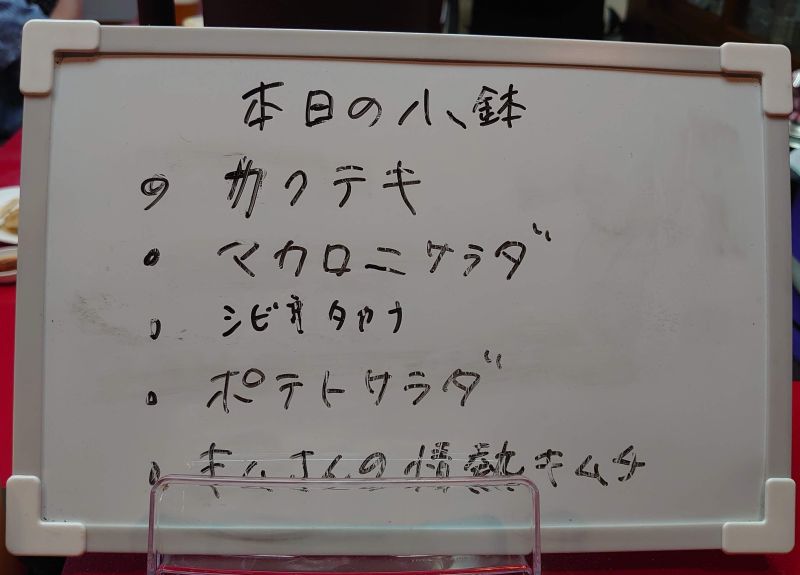 本日の小鉢
カクテキ
マカロニサラダ
シビ辛タカナ
ポテトサラダ
キムさんの情熱キムチ